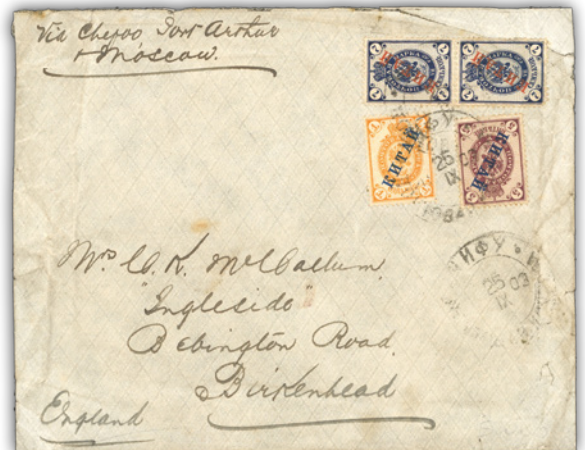 Via Chefoo Port Arthur
& Moscow.
7 7 7 7
КИТАЙ КИТАЙ
1 КИТАЙ
5 5 КИТАЙ
25 IX 03
ИФУ
25 03
IX
Mrs C. K. McCallum
"Ingleside"
Bebington Road.
Birkenhead
England